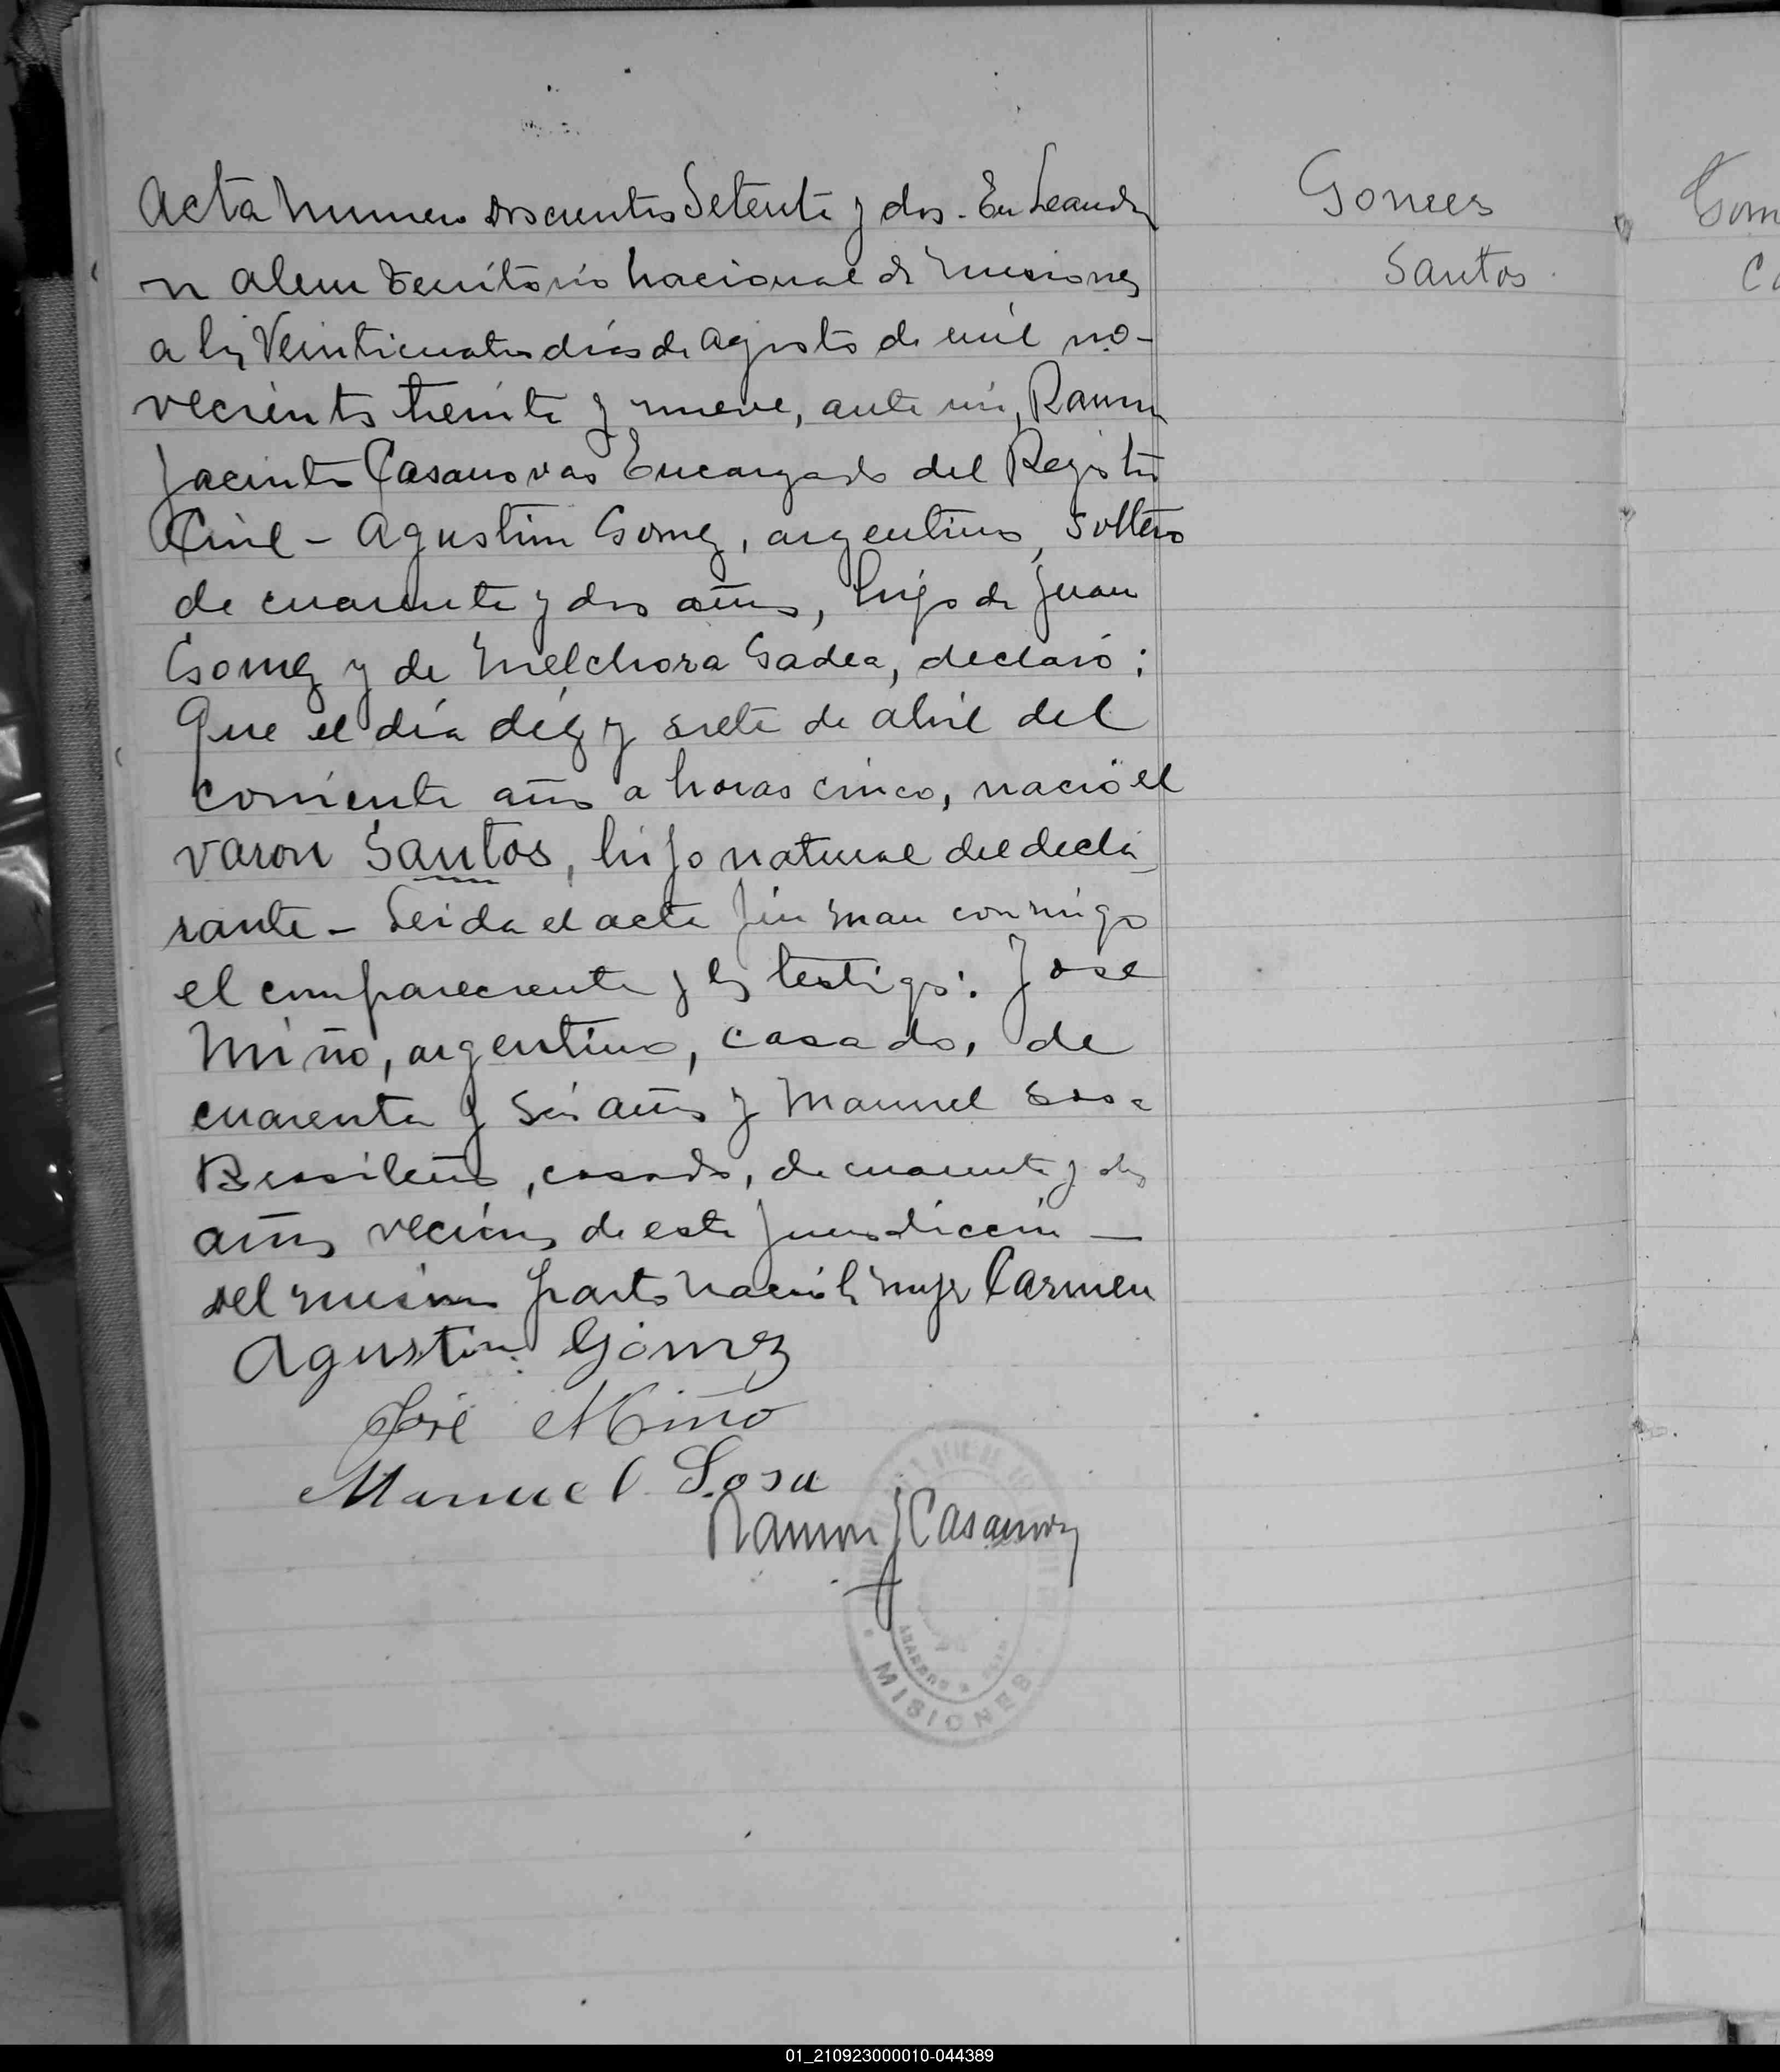 Acta numero doscientos Setenta y dos. En Leandro
n Alem Territorio nacional de Misiones
a los Veinticuatro dias de Agosto de mil no-
vecientos treinta y nueve, ante mi, Ramon
Jacinto Casanovas Encargado del Registro
Civil - Agustin Gomez, argentino, soltero
de cuarenta y dos años, hijo de Juan
Gomez y de Melchora Gadea, declaró:
Que el día diez y siete de abril del
corriente año a horas cinco, nació el
varon Santos, hijo natural del decla
rante - Leida el acta firman conmigo
el compareciente y los testigos: Jose
Miño, argentino, casado, de
cuarenta y seis años y Manuel Sosa
Brasileño, casado, de cuarenta y dos
años vecinos de esta jurisdiccion -
del mismo parto nació la mujer Carmen
Agustin Gómez
José Miño
Manuel Sosa
Ramon J Casanovas
MISIONES
Gomes
Santos
Gom
Ca
01_210923000010-044389